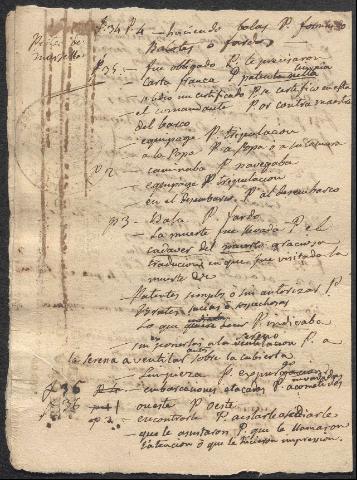 Peste de
Marsella
p. 34 p. 4 — haciendo bolas P. formando
Balotes ó fardos —
p 35. — fue obligado P. le precisaron
Carta franca P. patente limpia
pidio un certificado P. se certificó en esta
el comandante P. or contramaestre
del barco
— equipage P. tripulacion
a la Popa P. a Popa ó a su camara
p 2 — caminaba P. navegaba
— equipage P. tripulacion
en el desembarco P. al desembarco
p 3 — Bala P. fardo
— La muerte fue llevada P. el
cadaver del muerto
traducion en que fue visitado la
muerte &c
— Patentes simples ó sin autorizar P.
Brutas sucias ó sospechosas
Lo que P. indicaba
sin ponerlos a la ventilacion P. a
la serena a ventilar sobre la cubierta
— Limpieza P. expurgo
p 36 — embarcaciones atacadas P. acometidas
p 36 — oueste P. oeste
op. 2 — encontrarla P.
— que le asustaron P. que le llamaron
la atencion ó que le hicieron impresion.